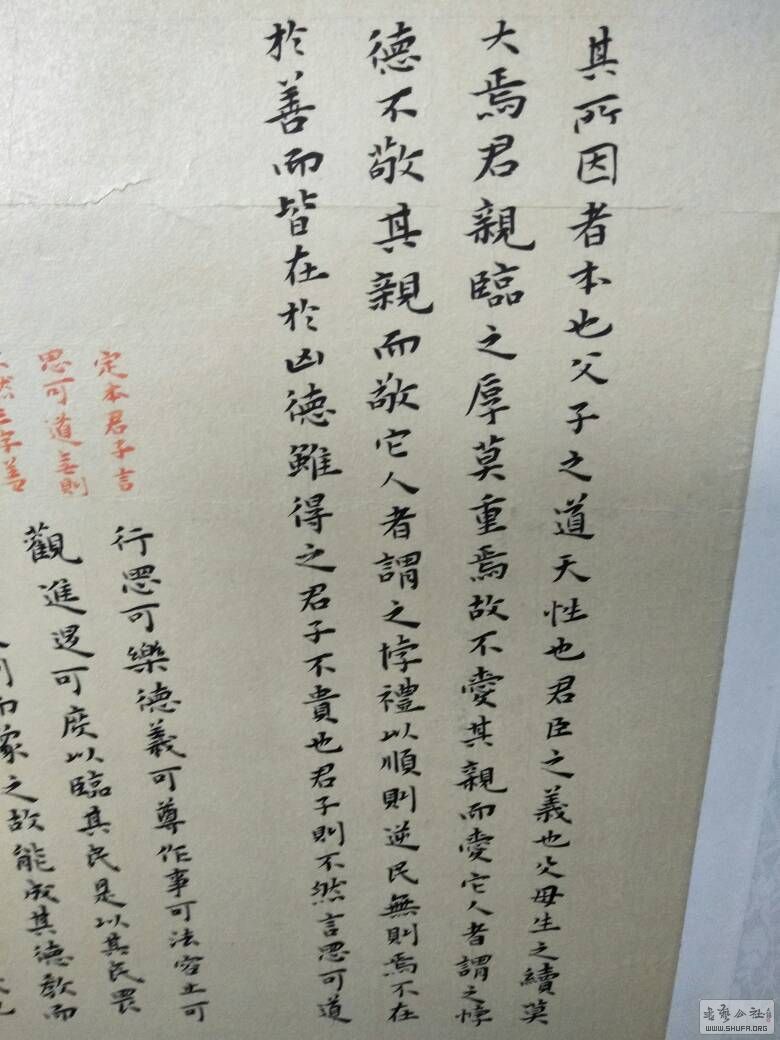 其所因者本也父子之道天性也君臣之義也父母生之續莫
大焉君親臨之厚莫重焉故不愛其親而愛它人者謂之悖
德不敬其親而敬它人者謂之悖禮以順則逆民無則焉不在
於善而皆在於凶德雖得之君子不貴也君子則不然言思可道
行思可樂德義可尊作事可法容止可
觀進退可度以臨其民是以其民畏
而象之故能成其德教而
定本君子言
思可道無則
然三字善
書藝公社
www.SHUFA.ORG